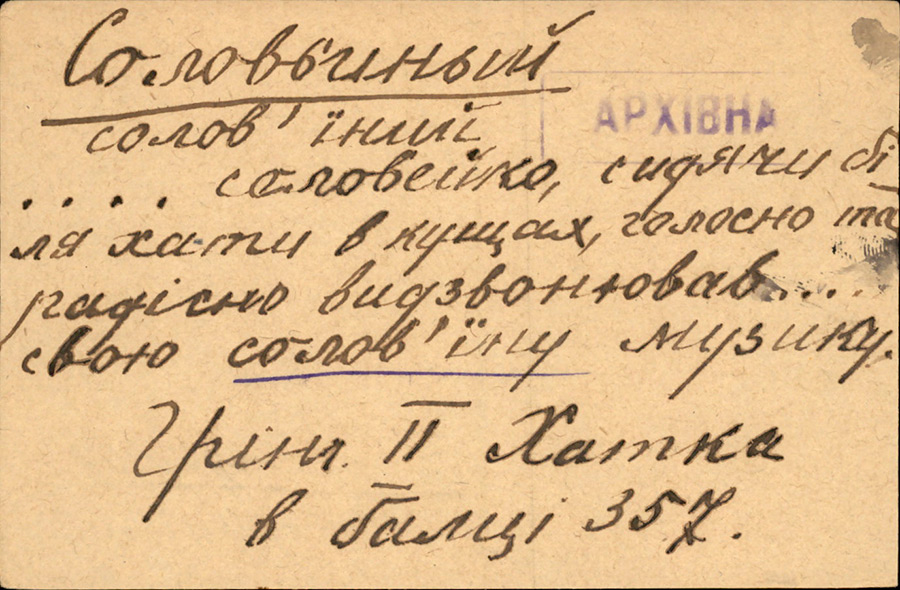 Соловьиный
АРХІВНА
солов' їний
.... соловейко, сидячи бі
ля хати в кущах, голосно та
радісно видзвонював....
свою солов'їну музику.
Грінч. II Хатка
в балці 357.